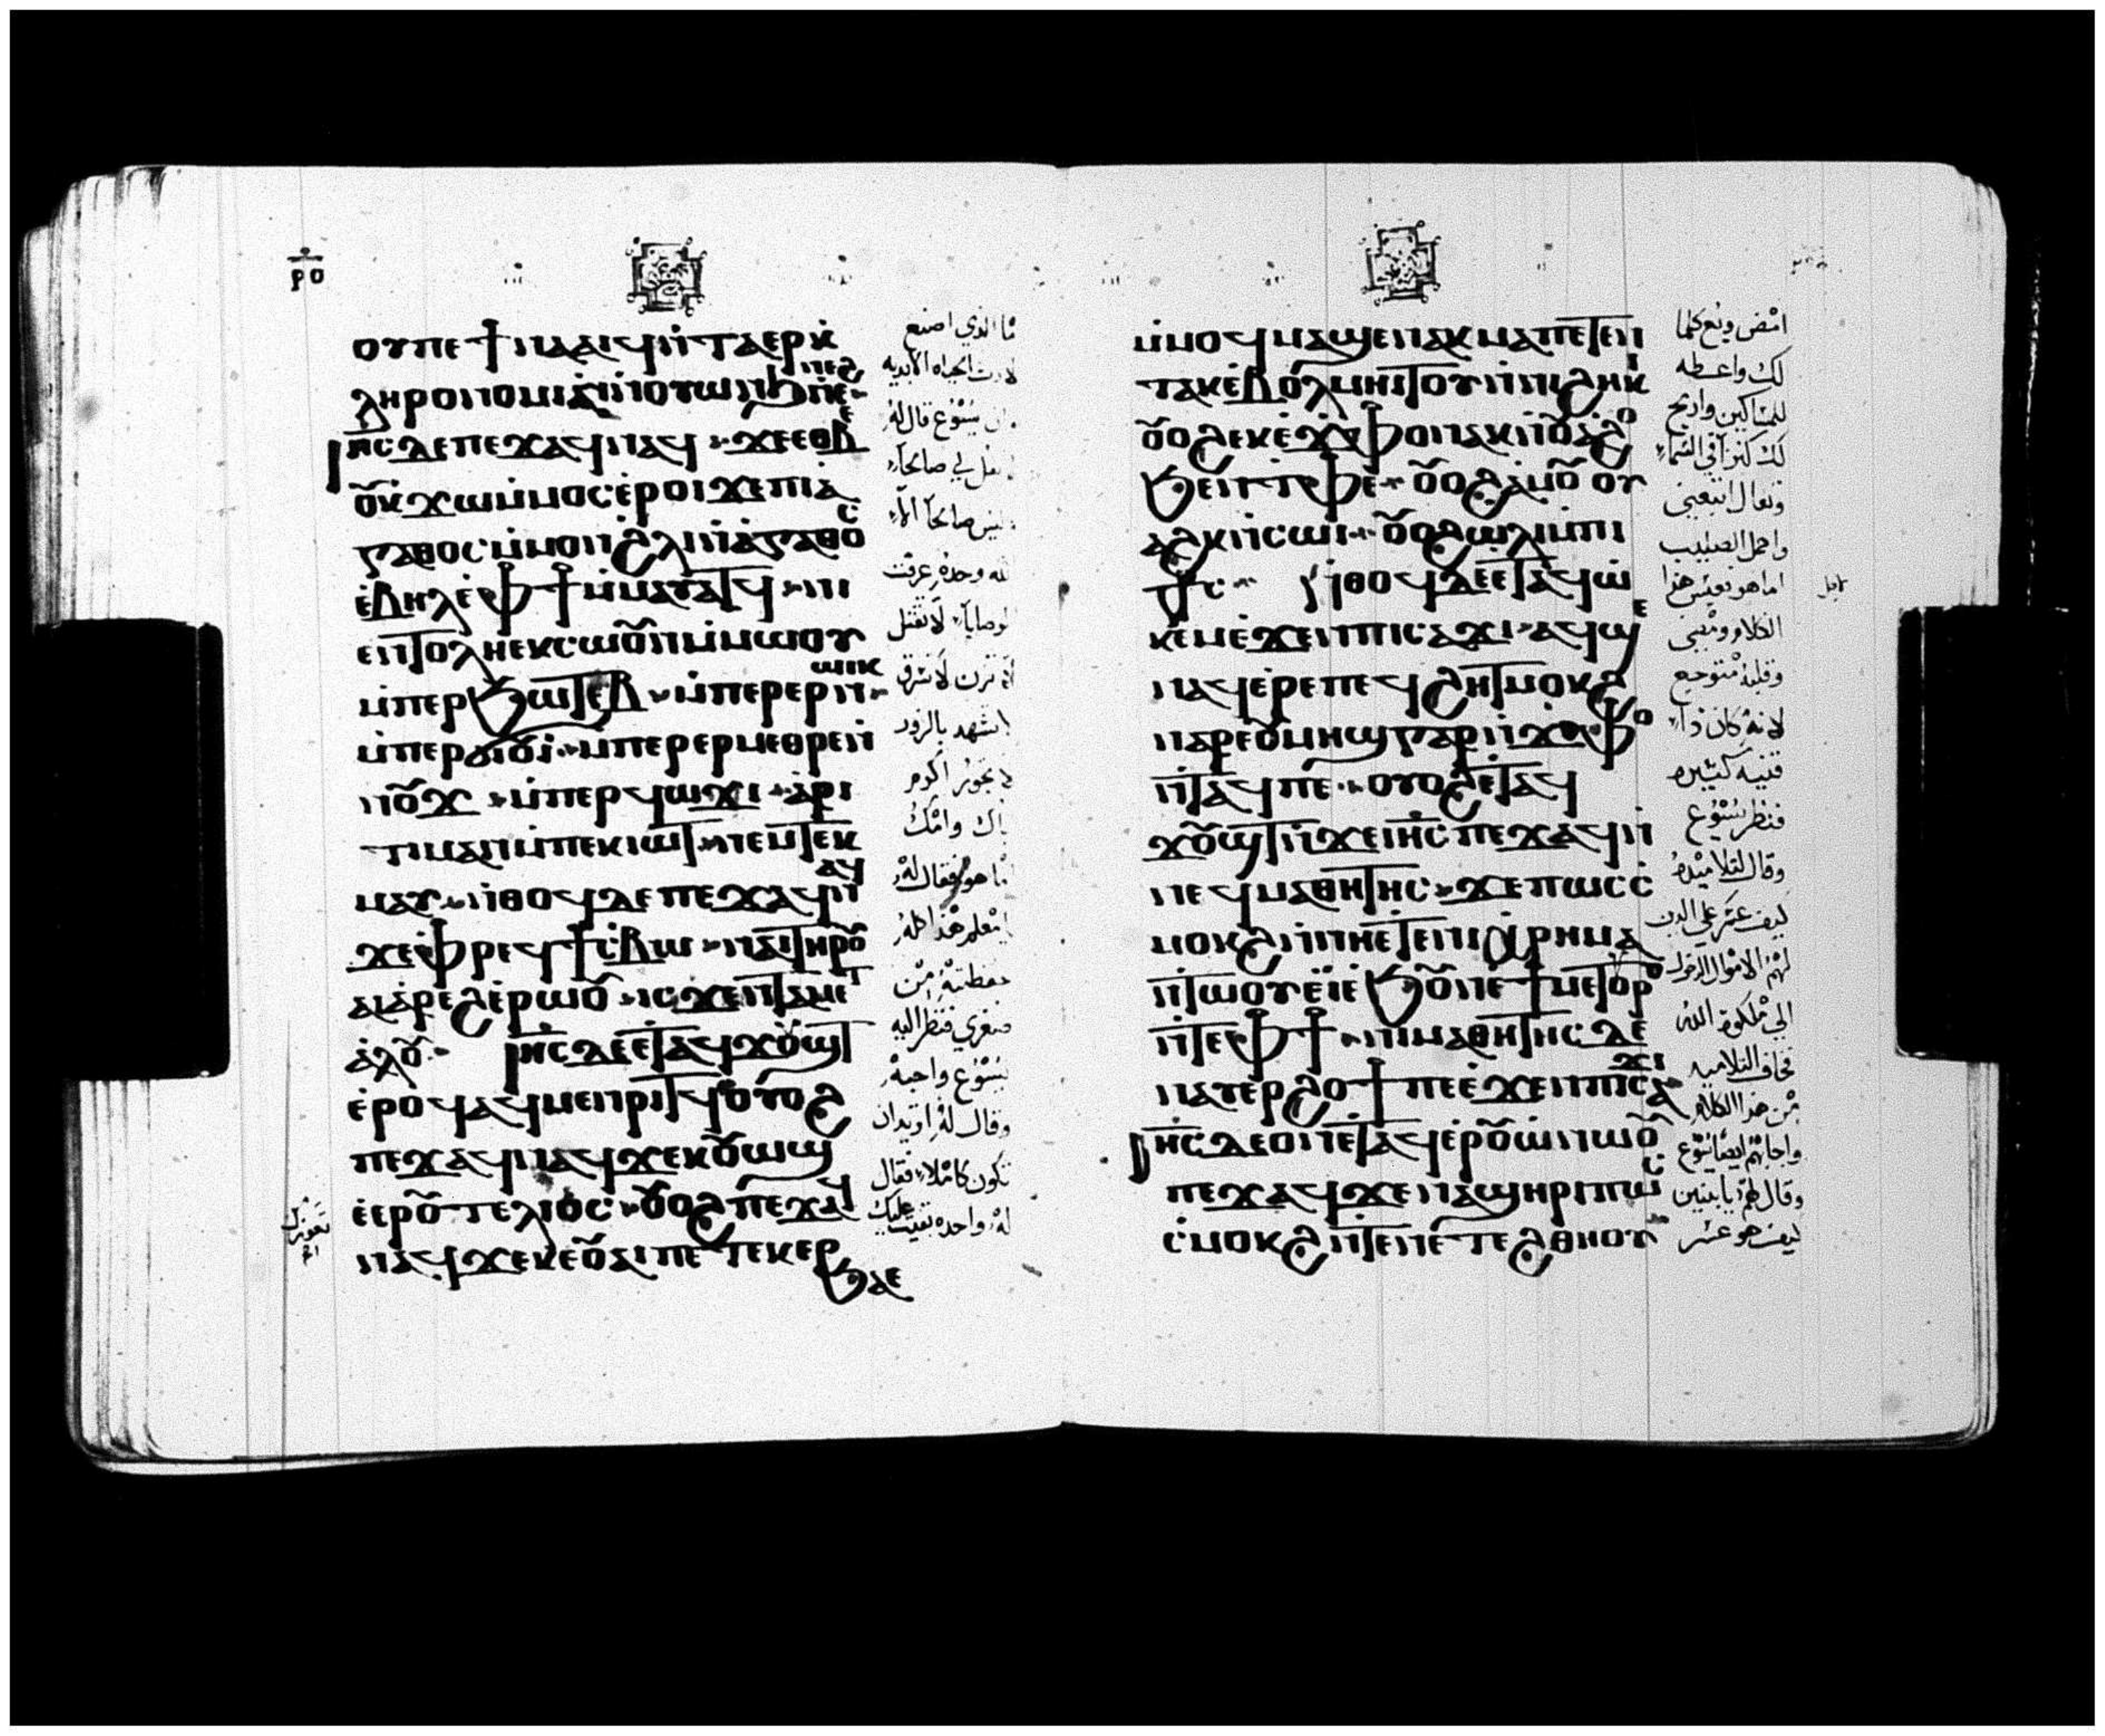 ⲣⲟ
ⲟⲩⲡⲉϯⲛⲁⲁⲓϥⲛ̇ⲧⲁⲉⲣⲕ̇
ⲗⲏⲣⲟⲛⲟⲙⲓⲛ̇ⲛⲟⲩⲱⲛϧⲛ̇ⲉⲛⲉϩ
ⲓⲏⲥⲇⲉⲡⲉϫⲁϥⲛⲁϥ ϫⲉⲉⲑⲃⲉ
ⲟⲩⲕ̇ϫⲱⲙ̇ⲙⲟⲥⲉ̇ⲣⲟⲓϫⲉⲡⲓⲁ̇
ⲅⲁⲑⲟⲥⲙ̇ⲙⲟⲛϩ̇ⲗⲓⲛ̇ⲁ̇ⲅⲁⲑⲟⲥ
ⲉ̇ⲃⲏⲗⲉ̇ⲫϯⲙ̇ⲙⲁⲩⲁⲧϥ ⲛⲓ
ⲉⲛⲧⲟⲗⲏⲉⲕⲥⲱⲟⲩⲛⲙ̇ⲙⲱⲟⲩ
ⲙ̇ⲡⲉⲣϧⲱⲧⲉⲃ ⲙ̇ⲡⲉⲣⲉⲣⲛⲱⲓⲕ
ⲙ̇ⲡⲉⲣϭⲓⲟⲩⲓ̇ ⲙ̇ⲡⲉⲣⲉⲣⲙⲉⲑⲣⲉⲛ̇
ⲛⲟⲩϫ ⲙ̇ⲡⲉⲣϥⲱϫⲓ ⲁ̇ⲣⲓ
ⲧⲓⲙⲁⲛⲙ̇ⲡⲉⲕⲓⲱⲧ ⲛⲉⲙⲧⲉⲕ
ⲙⲁⲩ ⲛ̇ⲑⲟϥⲇⲉⲡⲉϫⲁϥⲛⲁϥ
ϫⲉⲫⲣⲉϥϯⲥ̇ⲃⲱ ⲛⲁⲓⲧⲏⲣⲟⲩ
ⲁⲓⲁ̇ⲣⲉϩⲉ̇ⲣⲱⲟⲩ ⲓⲥϫⲉⲛⲧⲁⲙⲉⲧ
ⲁ̇ⲗⲟⲩ ⲓⲏⲥⲇⲉⲉⲧⲁϥϫⲟⲩϣⲧ
ⲉ̇ⲣⲟϥⲁϥⲙⲉⲛⲣⲓⲧϥⲟⲩⲟϩ
ⲡⲉϫⲁϥⲛⲁϥϫⲉⲕⲟⲩⲱϣ
ⲉ̇ⲉⲣⲟⲩⲧⲉⲗⲓⲟⲥ ⲟⲩⲟϩⲡⲉϫⲁϥ
ⲛⲁϥϫⲉⲕⲉⲟⲩⲁⲓⲡⲉⲧⲉⲕⲉⲣ
ϧⲁⲉ
ما الذي اصنع
لارث الحياه الابديه
يسوع قال له
صالحاً
ليس صالحاً الا
الله وحده عرفت
الوصايا لا تقتل
لا تزن لا تسرق
لا تشهد بالزور
لا تجور اكرم
اباك وامك
اما هو فقال له
يا معلم هذا كله
حفظته من
صغري فنظر اليه
يسوع واحبه
وقال له اتريد ان
تكون كاملا فقال
له واحده بقيت عليك
ⲙ̇ⲙⲟϥⲙⲁϣⲉⲛⲁⲕⲙⲁⲡⲉⲧⲉⲛ
ⲧⲁⲕⲉ̇ⲃⲟⲗⲙⲏⲓⲧⲟⲩⲛ̇ⲛⲓϩⲏⲕⲓ
ⲟⲩⲟϩⲉⲕⲉ̇ϫⲫⲟⲛⲁⲕⲛ̇ⲟⲩⲁϩⲟ
ϧⲉⲛⲧⲫⲉ ⲟⲩⲟϩⲁ̇ⲙⲟⲩ ⲟⲩ
ⲁϩⲕⲛ̇ⲥⲱⲓ ⲟⲩⲟϩⲱⲗⲓⲙ̇ⲡⲓ
ⲛ̇ⲑⲟϥⲇⲉⲉⲧⲁϥⲱ̇
ⲕⲉⲙⲉ̇ϫⲉⲛⲡⲓⲥⲁϫⲓ ⲁϥϣⲉ
ⲛⲁϥⲉ̇ⲣⲉⲡⲉϥϩⲏⲧⲙⲟⲕϩ
ⲛⲁⲣⲉⲟⲩⲙⲏϣⲅⲁⲣⲛ̇ϫⲫⲟ
ⲛ̇ⲧⲁϥⲡⲉ ⲟⲩⲟϩⲉⲧⲁϥ
ϫⲟⲩϣⲧⲛ̇ϫⲉⲓⲏⲥⲡⲉϫⲁϥⲛ̇
ⲛⲉϥⲙⲁⲑⲏⲧⲏⲥ ϫⲉⲡⲱⲥⲥ̇
ⲙⲟⲕϩⲛ̇ⲛⲏⲉⲧⲉⲛⲓⲭⲣⲏⲙⲁ
ⲛ̇ⲧⲱⲟⲩⲉ̇ⲓ̇ⲉ̇ϧⲟⲩⲛⲉ̇ϯⲙⲉⲧⲟⲩⲣⲟ
ⲛ̇ⲧⲉⲫϯ ⲛⲓⲙⲁⲑⲏⲧⲏⲥⲇⲉ
ⲛⲁⲩⲉⲣϩⲟϯⲡⲉⲉ̇ϫⲉⲛⲡⲓⲥⲁϫⲓ
ⲓⲏⲥⲇⲉⲟⲛⲉⲧⲁϥⲉⲣⲟⲩⲱ̇ⲛⲱⲟⲩ
ⲡⲉϫⲁϥϫⲉⲛⲁϣⲏⲣⲓⲡⲱⲥ
ⲥ̇ⲙⲟⲕϩⲛ̇ⲧⲉⲛⲉⲧⲉϩⲑⲏⲟⲩ
امض وبع كلما
لك واعطه
للمساكين واربح
لك كنزاً في السماء
وتعال اتبعني
واحمل الصليب
اما هو فعبس هذا
الكلام ومضى
وقلبه متوجع
لانه كان ذا
قنيه كثيره
فنظر يسوع
وقال لتلاميذه
كيف عسر على الذين
لهم الاموال الدخول
الى ملكوت الله
فخاف التلاميذ
من هذا الكلام
واجابهم ايضا يسوع
وقال لهم يا بنين
كيف هو عسر